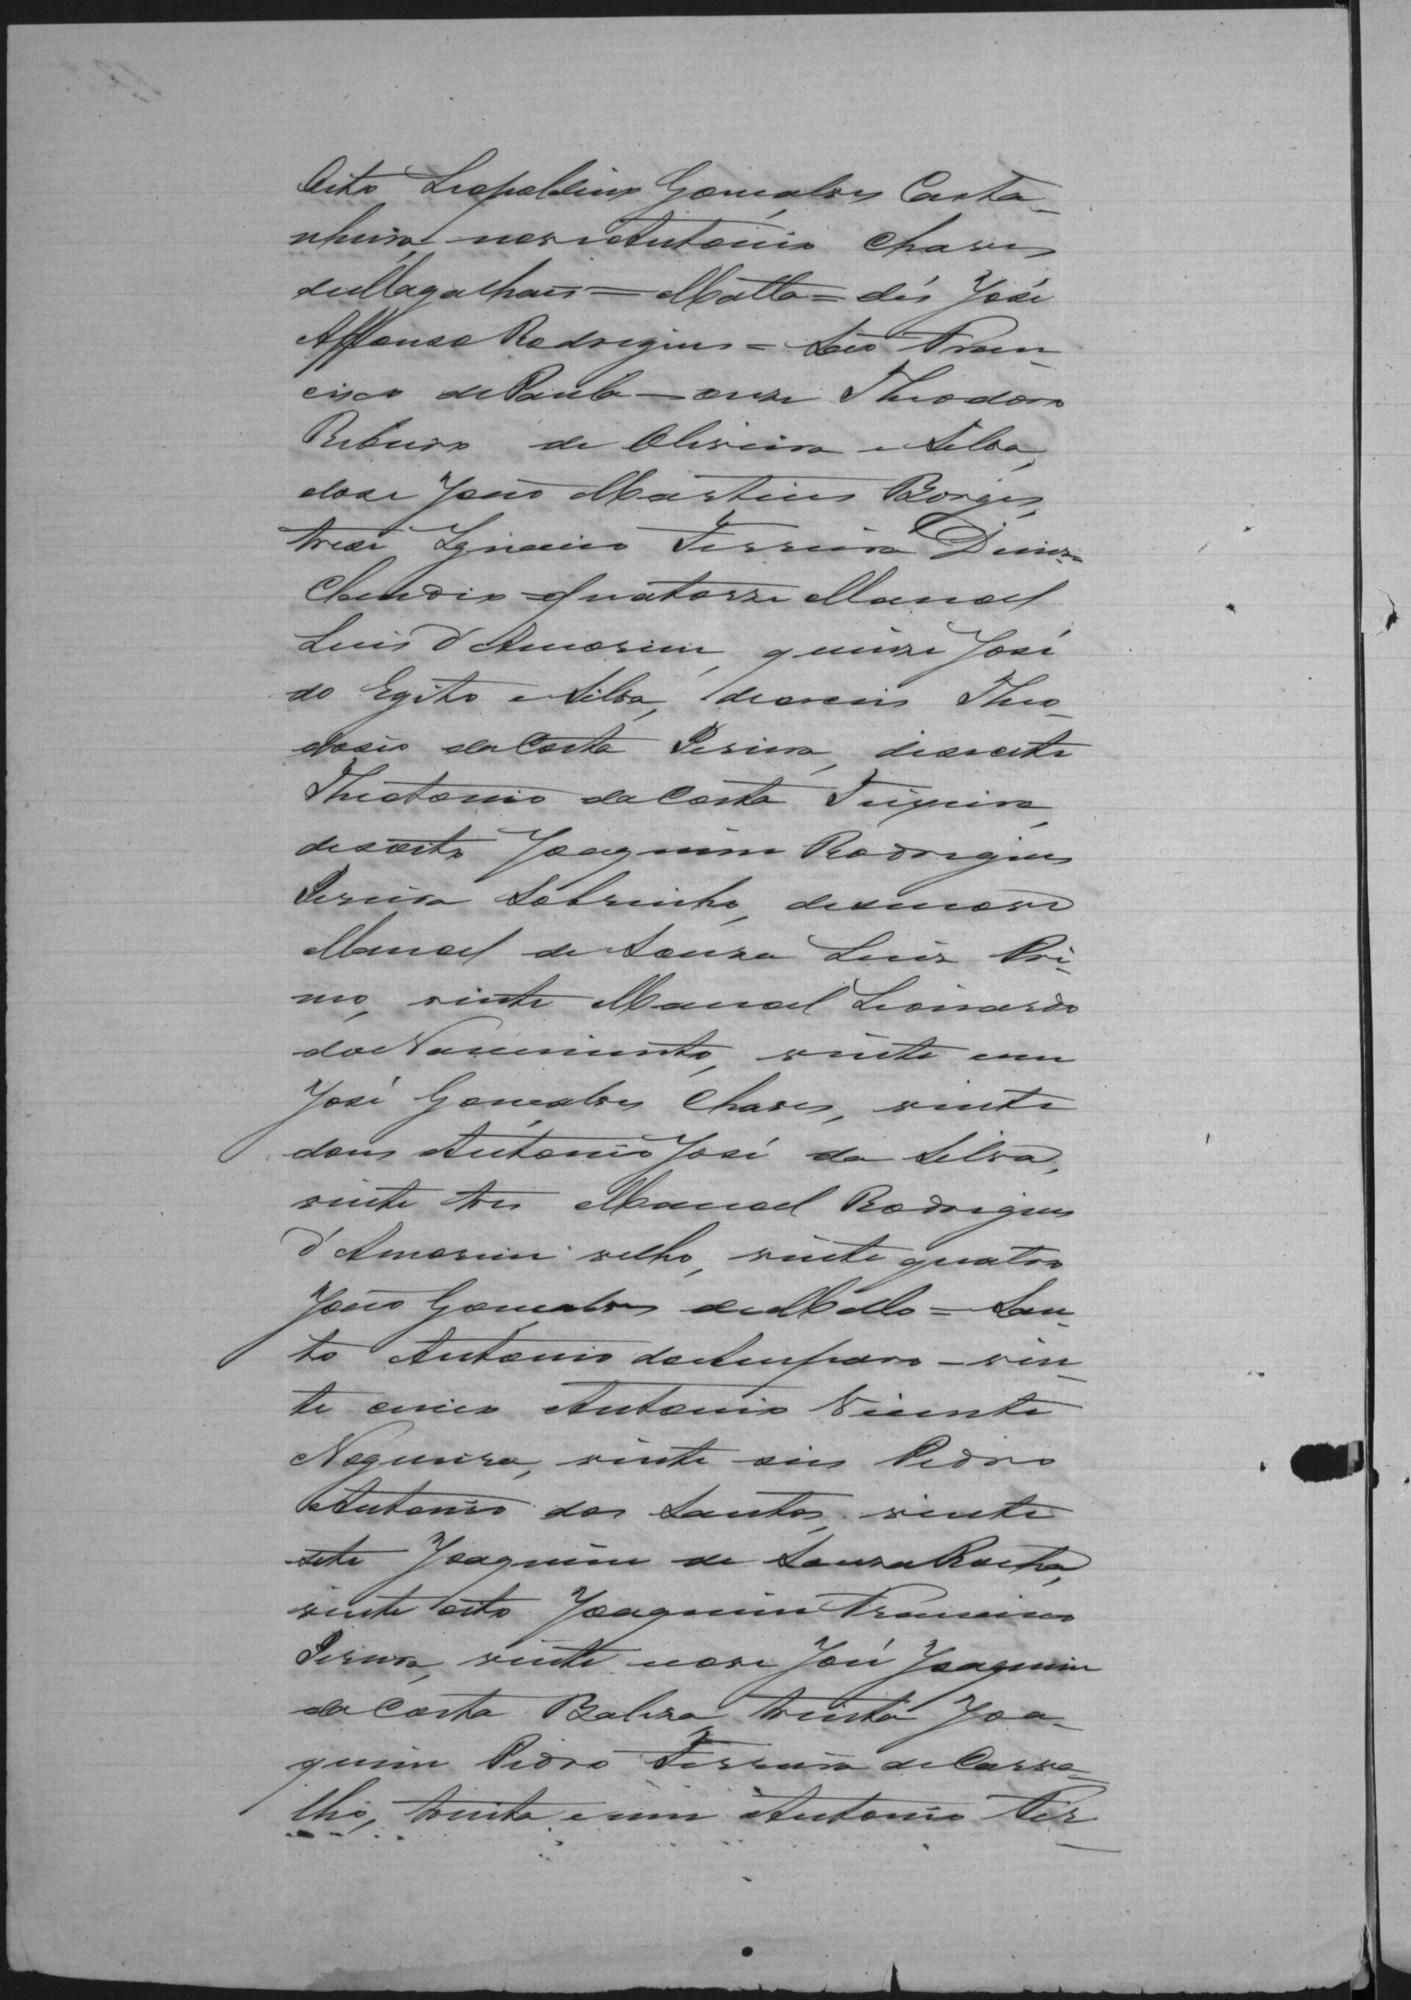 Oito Leopoldino Gonçalves Casta-
nheira, nove Antonio Chaves
de Magalhães = Matta = dés José
Affonso Rodrigues = São Fran-
cisco de Paula — onze Theodoro
Ribeiro de Oliveira e Silva,
dose João Martins Borges,
trese Ignacio Ferreira Diniz =
Claudio = quatorze Manoel
Luis d'Amorim, quinze José
do Egito e Silva, deseseis Theo-
dosio da Costa Pereira, desesete
Theotonio da Costa Teixeira,
desoito Joaquim Rodrigues
Pereira Sobrinho, desenove
Manoel de Souza Luiz Pri-
mo, vinte Manoel Leonardo
do Nascimento, vinte um
José Gonçalves Chaves, vinte
dous Antonio José da Silva,
vinte tres Manoel Rodrigues
d'Amorim velho, vinte quatro
João Gonçalves de Mello = San-
to Antonio do Amparo — vin-
te cinco Antonio Vicente
Nogueira, vinte seis Pedro
Antonio dos Santos, vinte
sete Joaquim de Souza Rocha,
vinte oito Joaquim Francisco
Pereira, vinte nove José Joaquim
da Costa Baliza, trinta Joa-
quim Pedro Ferreira de Carva-
lho, trinta e um Antonio Fer-